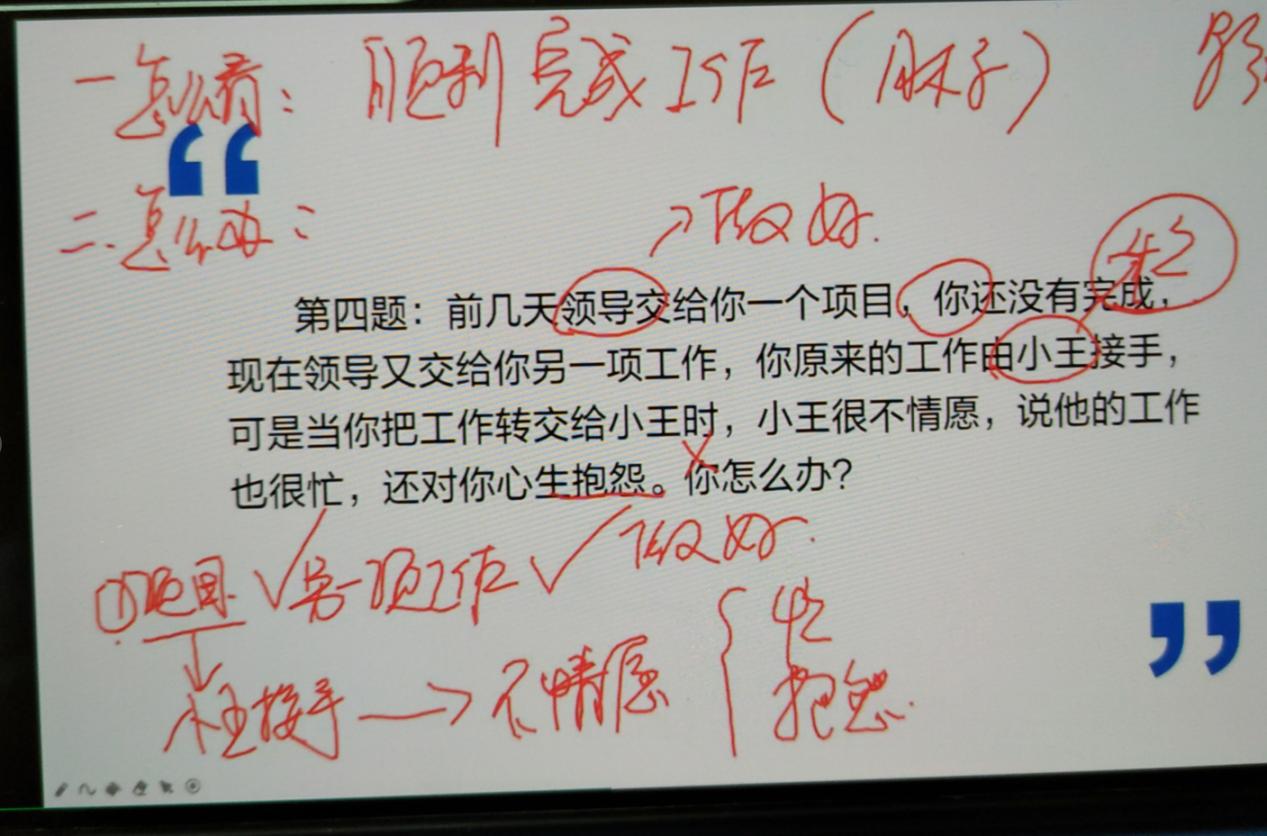 一怎么看：顺利完成工作（月体子）
二.怎么办：
→做好.
第四题：前几天领导交给你一个项目，你还没有完成，
现在领导又交给你另一项工作，你原来的工作由小王接手，
可是当你把工作转交给小王时，小王很不情愿，说他的工作
也很忙，还对你心生抱怨。你怎么办？
①项目 √ 另一项工作 √ 做好.
小王接手 → 不情愿 { 忙
抱怨.